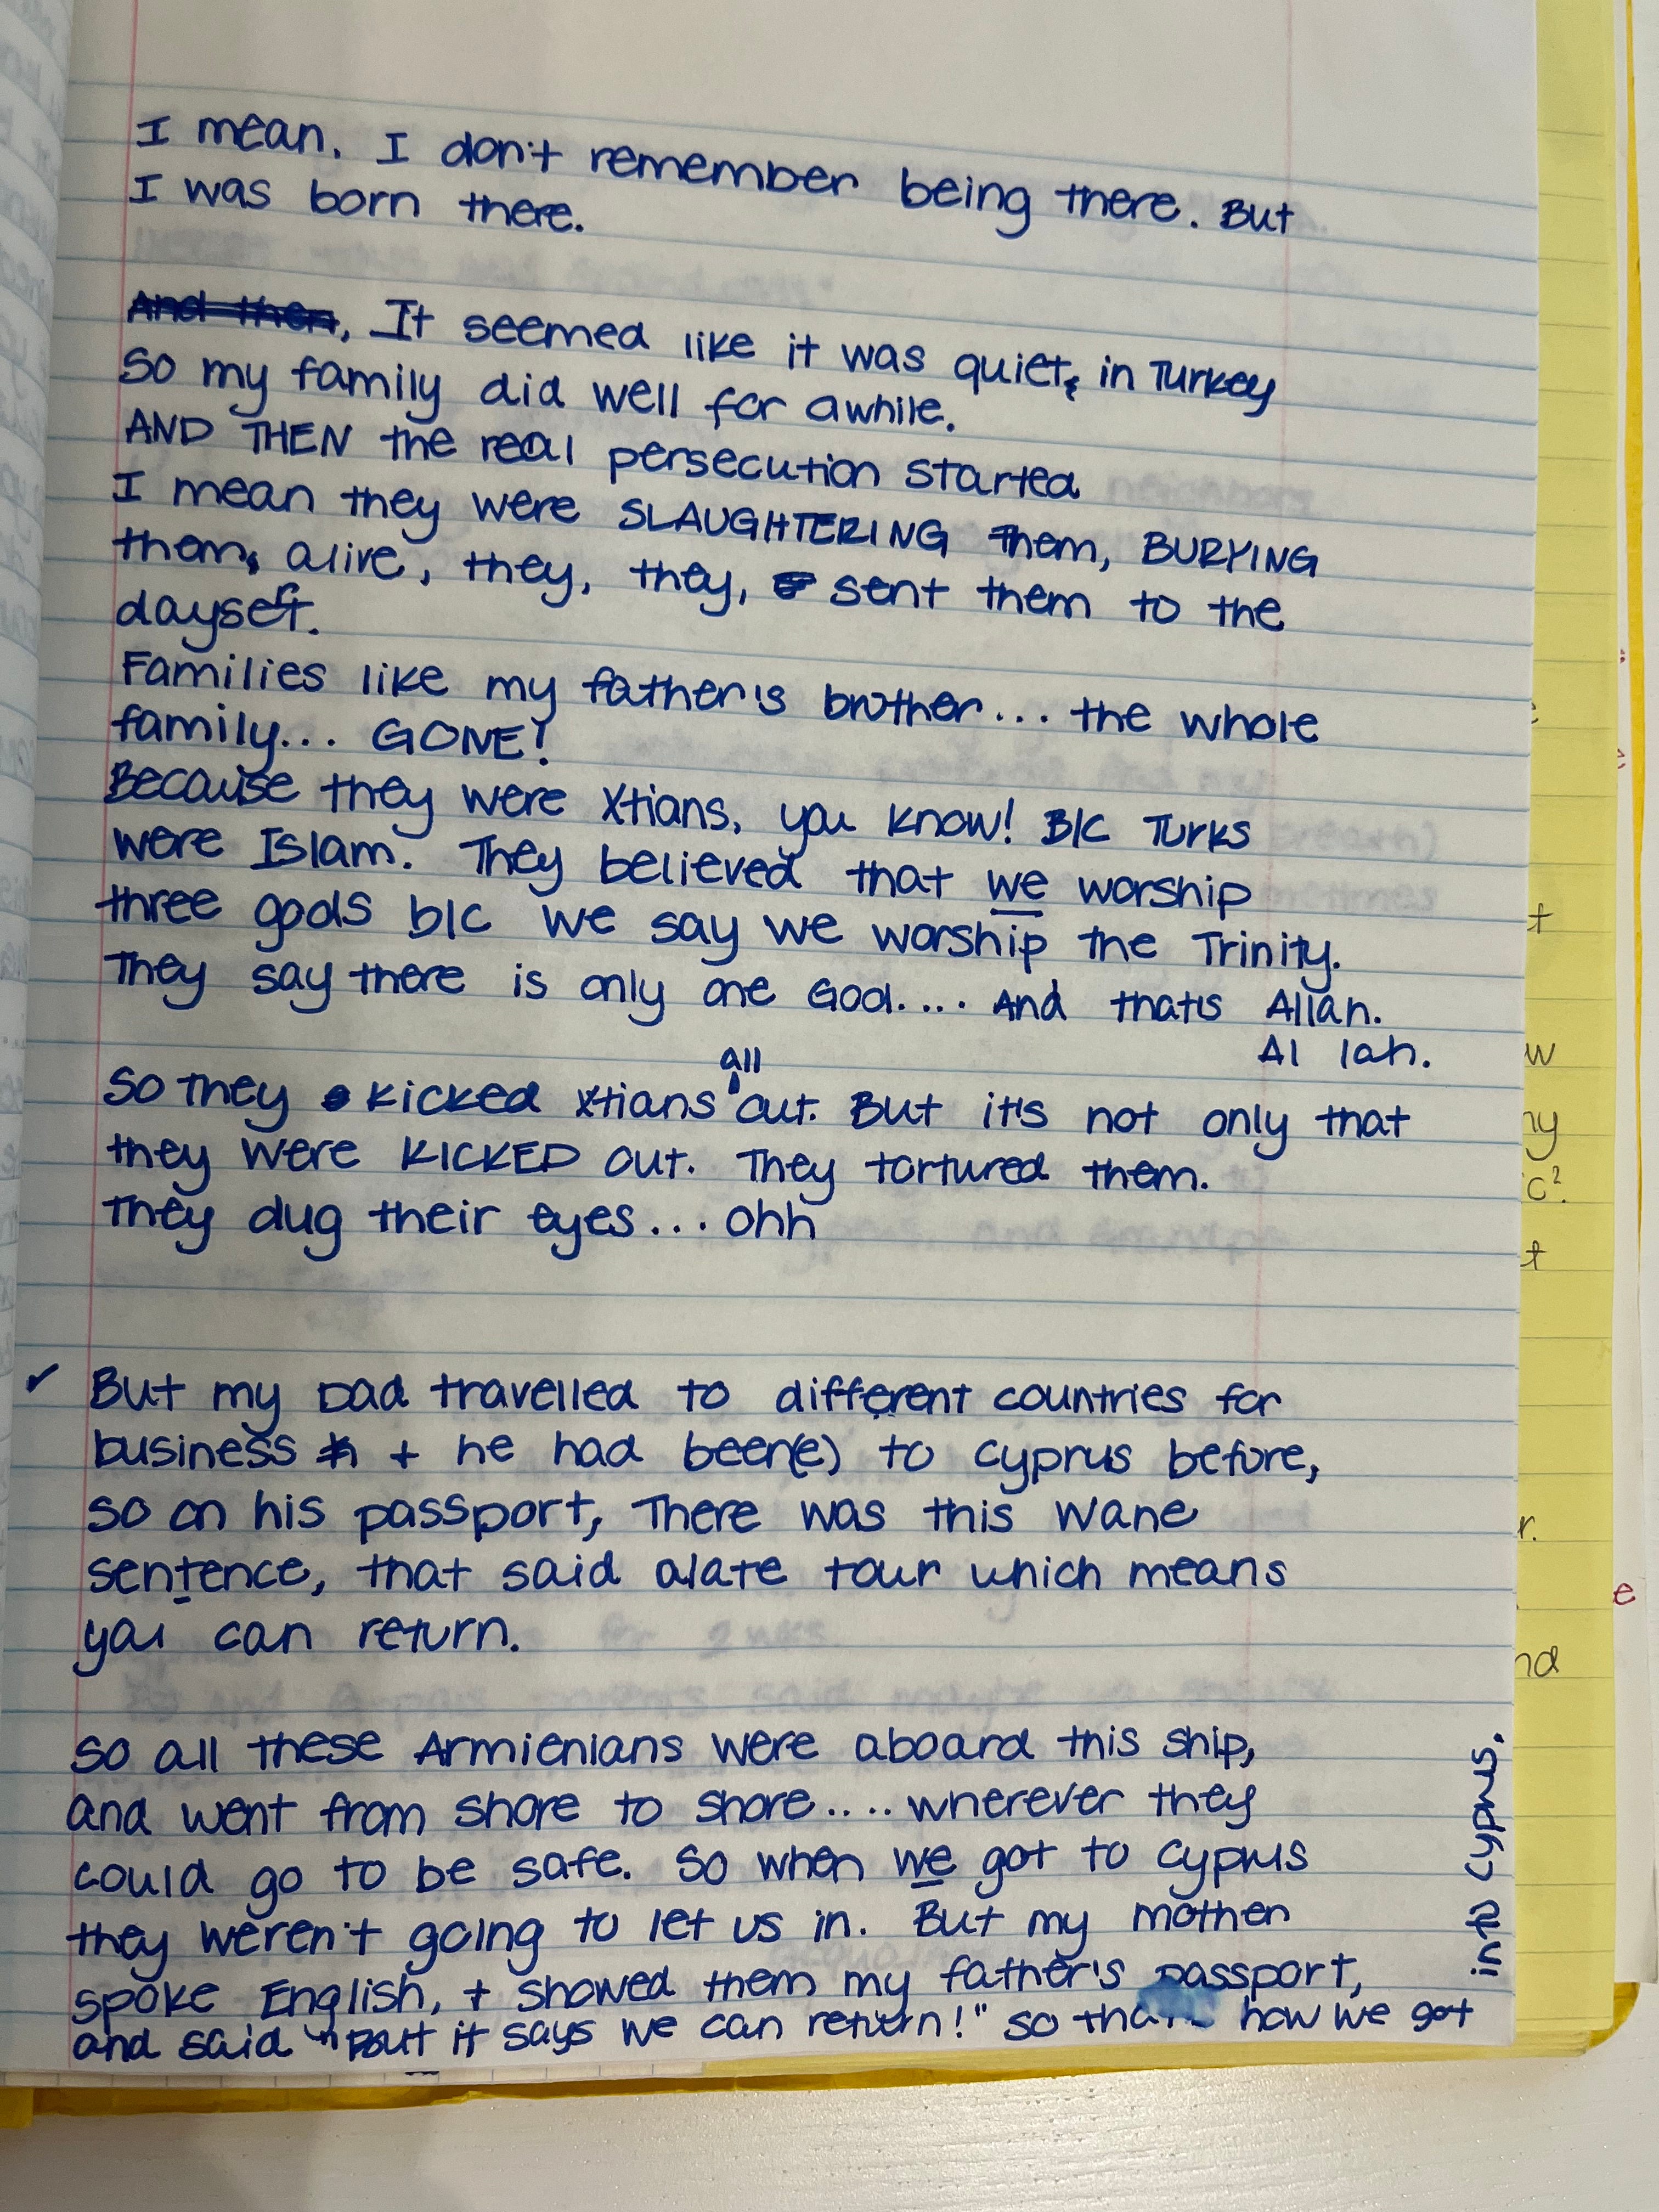 I mean. I don't remember being there. But
I was born there.
And then, It seemed like it was quiet, in Turkey
So my family did well for awhile.
AND THEN the real persecution started
I mean they were SLAUGHTERING them, BURYING
them, alive, they, they, sent them to the
dayseft.
Families like my father's brother... the whole
family... GONE!
Because they were Xtians, you know! B/c Turks
were Islam. They believed that we worship
three gods b/c we say we worship the Trinity.
They say there is only one God.... And that's Allah.
Al lah.
So they kicked Xtians all out. But it's not only that
they were KICKED out. They tortured them.
They dug their eyes... ohh
✓ But my Dad travelled to different countries for
business + he had been(e) to Cyprus before,
so on his passport, There was this wane
sentence, that said alate tour which means
you can return.
So all these Armienians were aboard this ship,
and went from shore to shore.... wherever they
could go to be safe. So when we got to Cyprus
they weren't going to let us in. But my mother
spoke English, + showed them my father's passport,
and said "But it says we can return!" so how we got
into Cyprus.